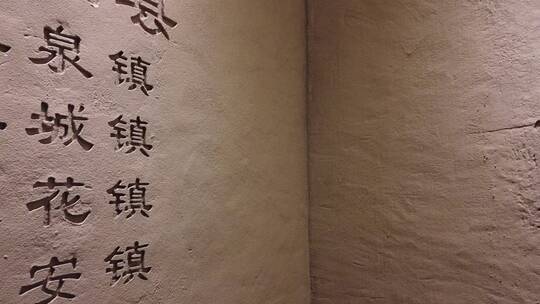 镇镇镇镇
泉城花安